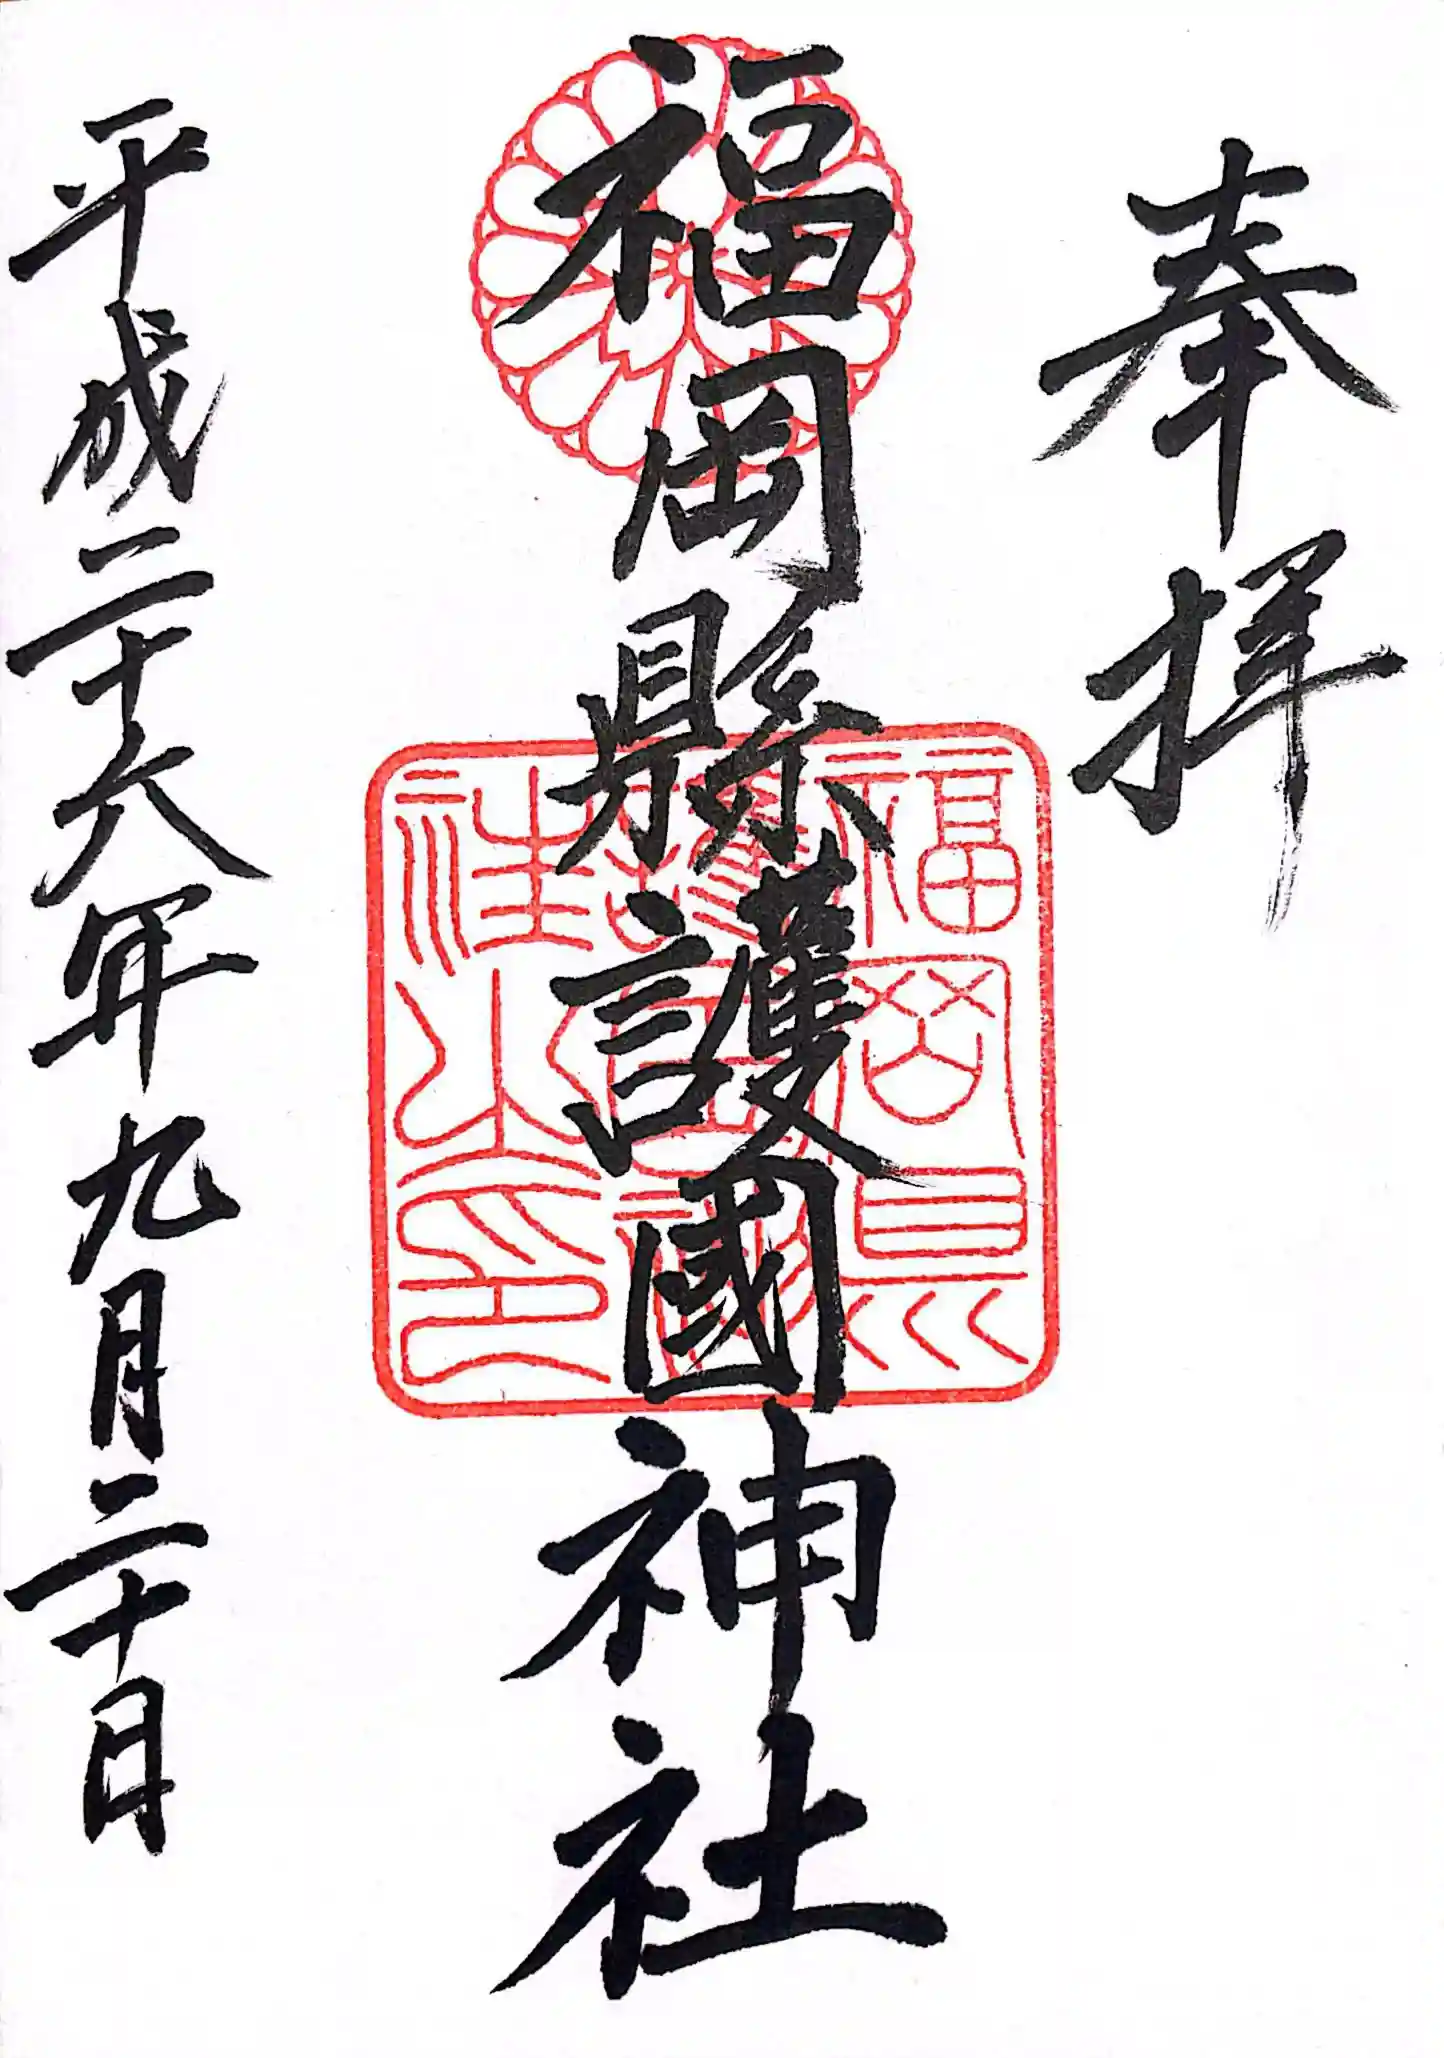 奉拝
福岡縣護國神社
福岡縣護國神社之印
平成二十六年九月二十日